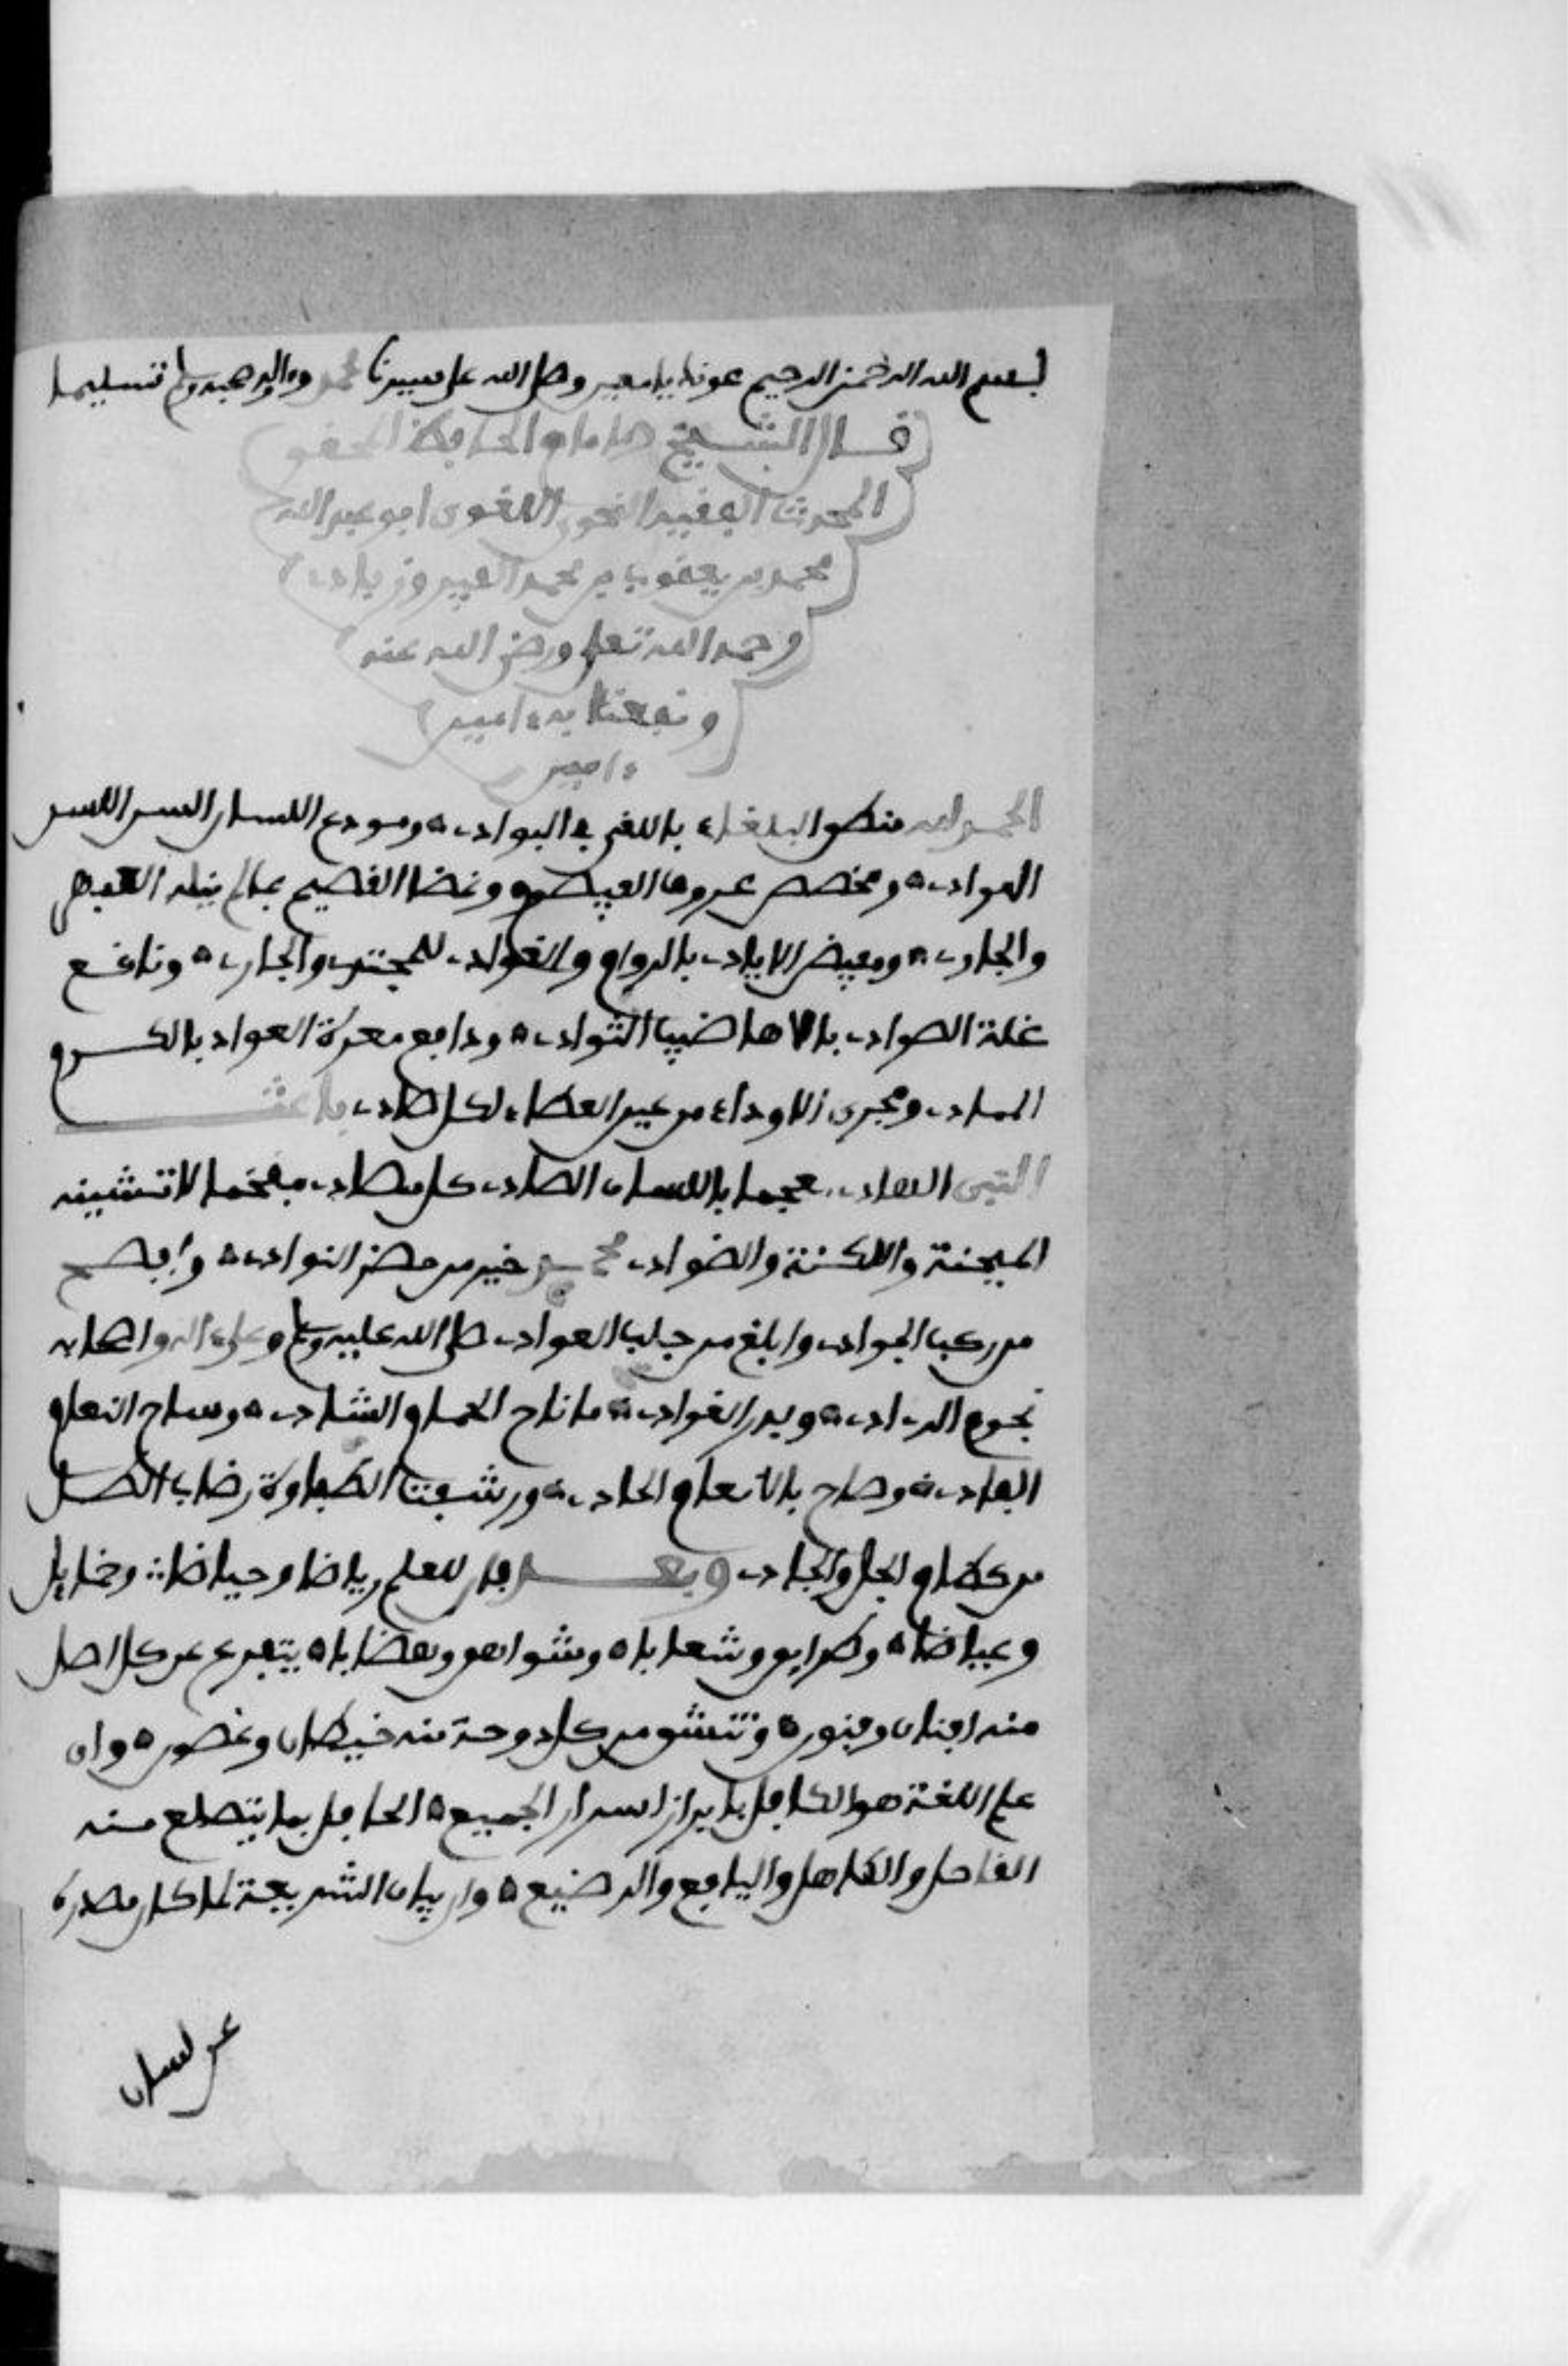 بسم الله الرحمن الرحيم عونك يا معين وصلى الله على سيدنا محمد وءاله وصحبه وسلم تسليما
قال الشيخ الامام الحافظ المحقق
المحدث الفقيه النحوي اللغوي ابو عبد الله
محمد بن يعقوب بن محمد الفيروزبادي
رحمه الله تعلى ورضي الله عنه
ونفعنا به ءامين
ءامين
الحمد لله منطق البلغاء باللغى في البوادي ومودع اللسان السن اللسن
الهوادي ومخصص عروق القيصوم وغضا القصيم بما لم ينله العبهر
والجادي ومفيض الايادي بالروائح والغوادي للمجتدي والجادي وناقع
غلة الصوادي بالاهاضيب الثوادي ودافع معرة العوادي بالكرم
الممادي ومجري الاوداء من عين العطاء لكل صادي باعث
النبي الهادي مفحما باللسان الضادي كل مضادي مفخما لا تشينه
الهجنة واللكنة والضوادي محمد خير من حضر النوادي وافصح
من ركب الخوادي وابلغ من حلب العوادي صلى الله عليه وسلم وعلى ءاله واصحابه
نجوم الدءادي وبدر القوادي ما ناح الحمام الشادي وساح النعام
القادي وصاح بالانعام الحادي ورشفت الطفاوة رضاب الطل
من كظام الجل والجادي وبعد فان للعلم رياضا وحياضا وخمايل
وغياضا وطرايق وشعابا وشواهق وهضابا يتفرع عن كل اصل
منه افنان وفنون وتنشق من كل دوحة منه خيطان وغصون وان
علم اللغة هو الكافل بابراز اسرار الجميع الحافل بما يتضلع منه
القاحل والكاهل واليافع والرضيع وان بيان الشريعة لما كان مصدره
عن لسان